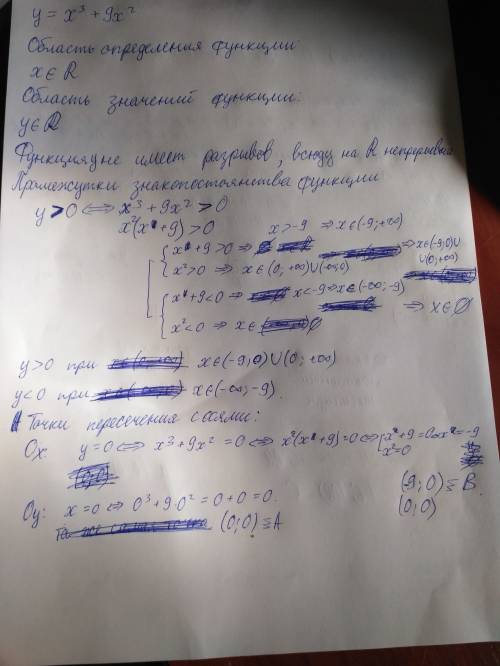 y = x³ + 9x²
Область определения функции:
x ∈ R
Область значений функции:
y ∈ R
Функция y не имеет разрывов, всюду на R непрерывна
Промежутки знакопостоянства функции
y > 0 ⇔ x³ + 9x² > 0
x²(x + 9) > 0 x > -9 ⇒ x ∈ (-9; +∞)
x + 9 > 0 ⇒ ⇒ x ∈ (-9; 0) ∪
∪ (0; +∞)
x² > 0 ⇒ x ∈ (0; +∞) ∪ (-∞; 0)
x + 9 < 0 ⇒ x < -9 ⇒ x ∈ (-∞; -9)
⇒ x ∈ ∅
x² < 0 ⇒ x ∈ ∅
y > 0 при x ∈ (-9; 0) ∪ (0; +∞)
y < 0 при x ∈ (-∞; -9).
Точки пересечения с осями:
Ox: y = 0 ⇔ x³ + 9x² = 0 ⇔ x²(x + 9) = 0 ⇔ x + 9 = 0 ⇔ x = -9
x² = 0
(-9; 0) ≡ B
Oy: x = 0 ⇔ 0³ + 9·0² = 0 + 0 = 0. (0; 0)
(0; 0) ≡ A